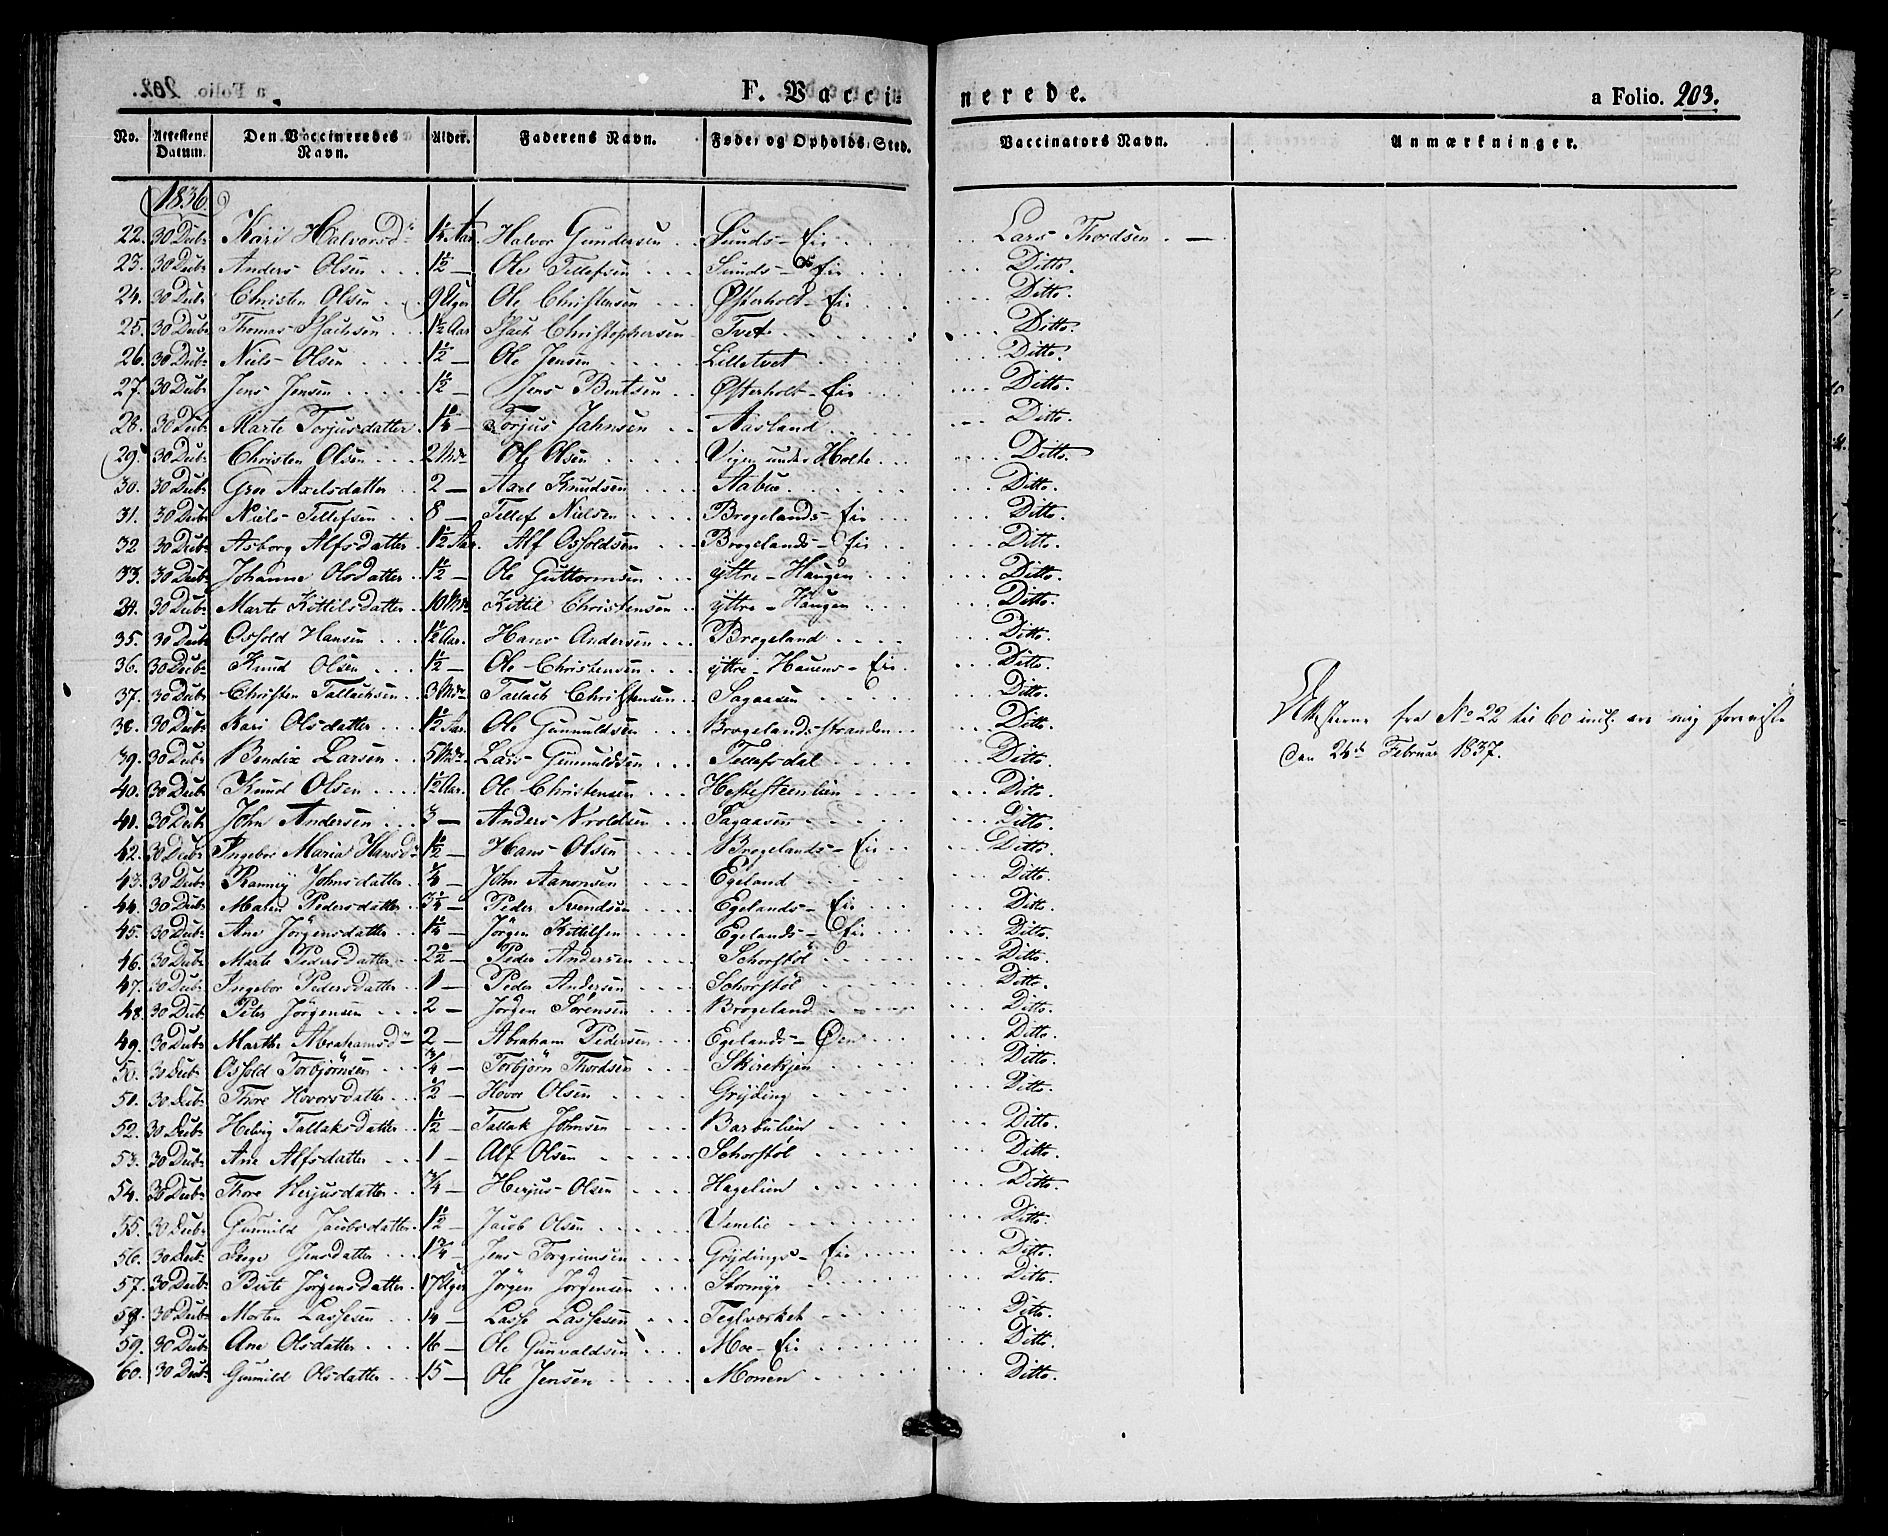 F. Vaccinerede.
a Folio. 203.
No. Attestens Datum. Den Vaccineredes Navn. Alder. Faderens Navn. Føde- og Opholds-Sted. Vaccinators Navn. Anmærkninger.
1836.
22. 30 Decbr Kari Halvorsd. 1½ Aar. Halvor Gundersen Sunds-Eie Lars Thordsen.
23. 30 Decbr Anders Olsen 1½ — Ole Tellefsen Sunds-Eie Ditto.
24. 30 Decbr Christen Olsen 9 Uger Ole Christensen Østerholt-Eie Ditto.
25. 30 Decbr Thomas Isachsen 1½ Aar Isach Christophersen Tvet Ditto.
26. 30 Decbr Niels Olsen 1½ — Ole Jensen Lilletvet Ditto.
27. 30 Decbr Jens Jensen 1½ — Jens Bentsen Østerholt-Eie Ditto.
28. 30 Decbr Marte Torjusdatter — Torjus Jahnsen Aasland Ditto.
29. 30 Decbr Christen Olsen 2 Mdr Ole Olsen Vigen under Holte Ditto.
30. 30 Decbr Groe Axelsdatter 2 — Axel Knudsen Aabue Ditto.
31. 30 Decbr Niels Tellefsen 8 — Tellef Nielsen Brogelands-Eie Ditto.
32 30 Decbr Asborg Alfsdatter 1½ Aar. Alf Osfoldsen Brogelands-Eie Ditto.
33. 30 Decbr Johanne Olsdatter 1½ — Ole Guttormsen yttre-Haugen Ditto.
34. 30 Decbr Marte Kittilsdatter 10 Mdr Kittil Christensen yttre-Haugen Ditto.
35. 30 Decbr Osfold Hansen 1½ Aar. Hans Andersen Brogeland Ditto.
36. 30 Decbr Knud Olsen 1½ — Ole Christensen yttre-Hauens-Eie Ditto.
37. 30 Decbr Christen Tallachsen 3 Mdr Tallach Christensen Sagaasen Ditto.
38. 30 Decbr Kari Olsdatter 1½ Aar. Ole Gunnuldsen Brogelandsstranden Ditto.
39. 30 Decbr Bendix Larsen 5 Mdr. Lars Gunnuldsen Tellefsdal Ditto.
Attesterne fra No 22 til 60 incl. ere mig foreviste
den 24de Februar 1837.
40. 30 Decbr Knud Olsen 1½ Aar. Ole Christensen Hestesteenlien Ditto.
41. 30 Decbr John Andersen 3 — Anders Nroldsen Sagaasen Ditto.
42. 30 Decbr Ingebor Maria Hansd. 1½ — Hans Olsen Brogelands-Eie Ditto.
43. 30 Decbr Ranney Johnsdatter — John Aanonsen Egeland Ditto.
44. 30 Decbr Maren Pedersdatter — Peder Svendsen Egelands-Eie Ditto.
45. 30 Decbr Ane Jörgensdatter — Jörgen Kittilsen Egelands-Eie Ditto.
46. 30 Decbr Marte Pedersdatter 2½ — Peder Andersen Schorstöl Ditto.
47. 30 Decbr Ingebor Pedersdatter 1 — Peder Andersen Schorstöl Ditto.
48. 30 Decbr Peter Jörgensen 2 — Jörgen Sörensen Brogeland Ditto.
49. 30 Decbr Marthe Abrahamsd. 2 — Abraham Pedersen Egelands-Øen Ditto.
50. 30 Decbr Osfold Torbjörnsen ¾ — Torbjörn Thordsen Skirekjen Ditto.
51. 30 Decbr Thore Hovorsdatter ½ — Hovor Olsen Gryding Ditto.
52. 30 Decbr Helvig Tallaksdatter 1½ — Tallak Johnsen Barbulien Ditto.
53. 30 Decbr Ane Alfsdatter 1 — Alf Olsen Schorstöl Ditto.
54. 30 Decbr Thore Herjusdatter ¾ — Herjus Olsen Hagelien Ditto.
55. 30 Decbr Gunnild Jacobsdatter 1½ — Jacob Olsen Venelie Ditto.
56. 30 Decbr Inge Jensdatter 1¾ — Jens Torgrimsen Grydings-Eie Ditto.
57. 30 Decbr Birte Jörgensdatter 17 Uger Jörgen Jörgensen Stormyr Ditto.
58. 30 Decbr Morten Lassesen 14 — Lasse Lassesen Teglværket Ditto.
59. 30 Decbr Ane Olsdatter 16 — Ole Gunvaldsen Moe-Eie Ditto.
60. 30 Decbr Gunnild Olsdatter 15 — Ole Jensen Monen Ditto.